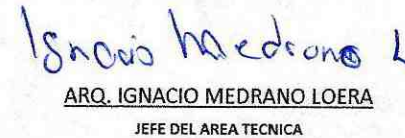 Ignacio Medrano L
ARQ. IGNACIO MEDRANO LOERA
JEFE DEL AREA TECNICA